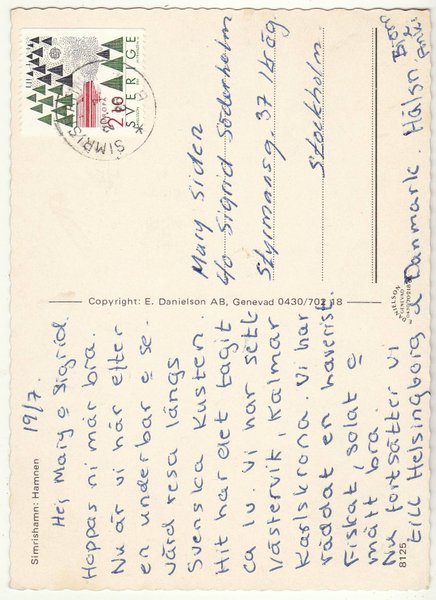 Simrishamn: Hamnen
19/7.
Hej Mary o Sigrid.
Hoppas ni mår bra.
Nu är vi här efter
en underbar o se-
värd resa längs
Svenska Kusten.
Hit har det tagit
ca 1v. Vi har sett
Västervik, Kalmar
Karlskrona. Vi har
räddat en haverist.
Fiskat, solat o
mått bra.
Nu fortsätter vi
till Helsingborg o Danmark. Hälsn
8125
Copyright: E. Danielson AB, Genevad 0430/702 18
DANIELSON
GENEVAD
0430/70218
SVERIGE
2.60
SIMRIS
Mary Siden
c/o Sigrid Söderholm
Styrmansg. 37 14 ög
Stockholm